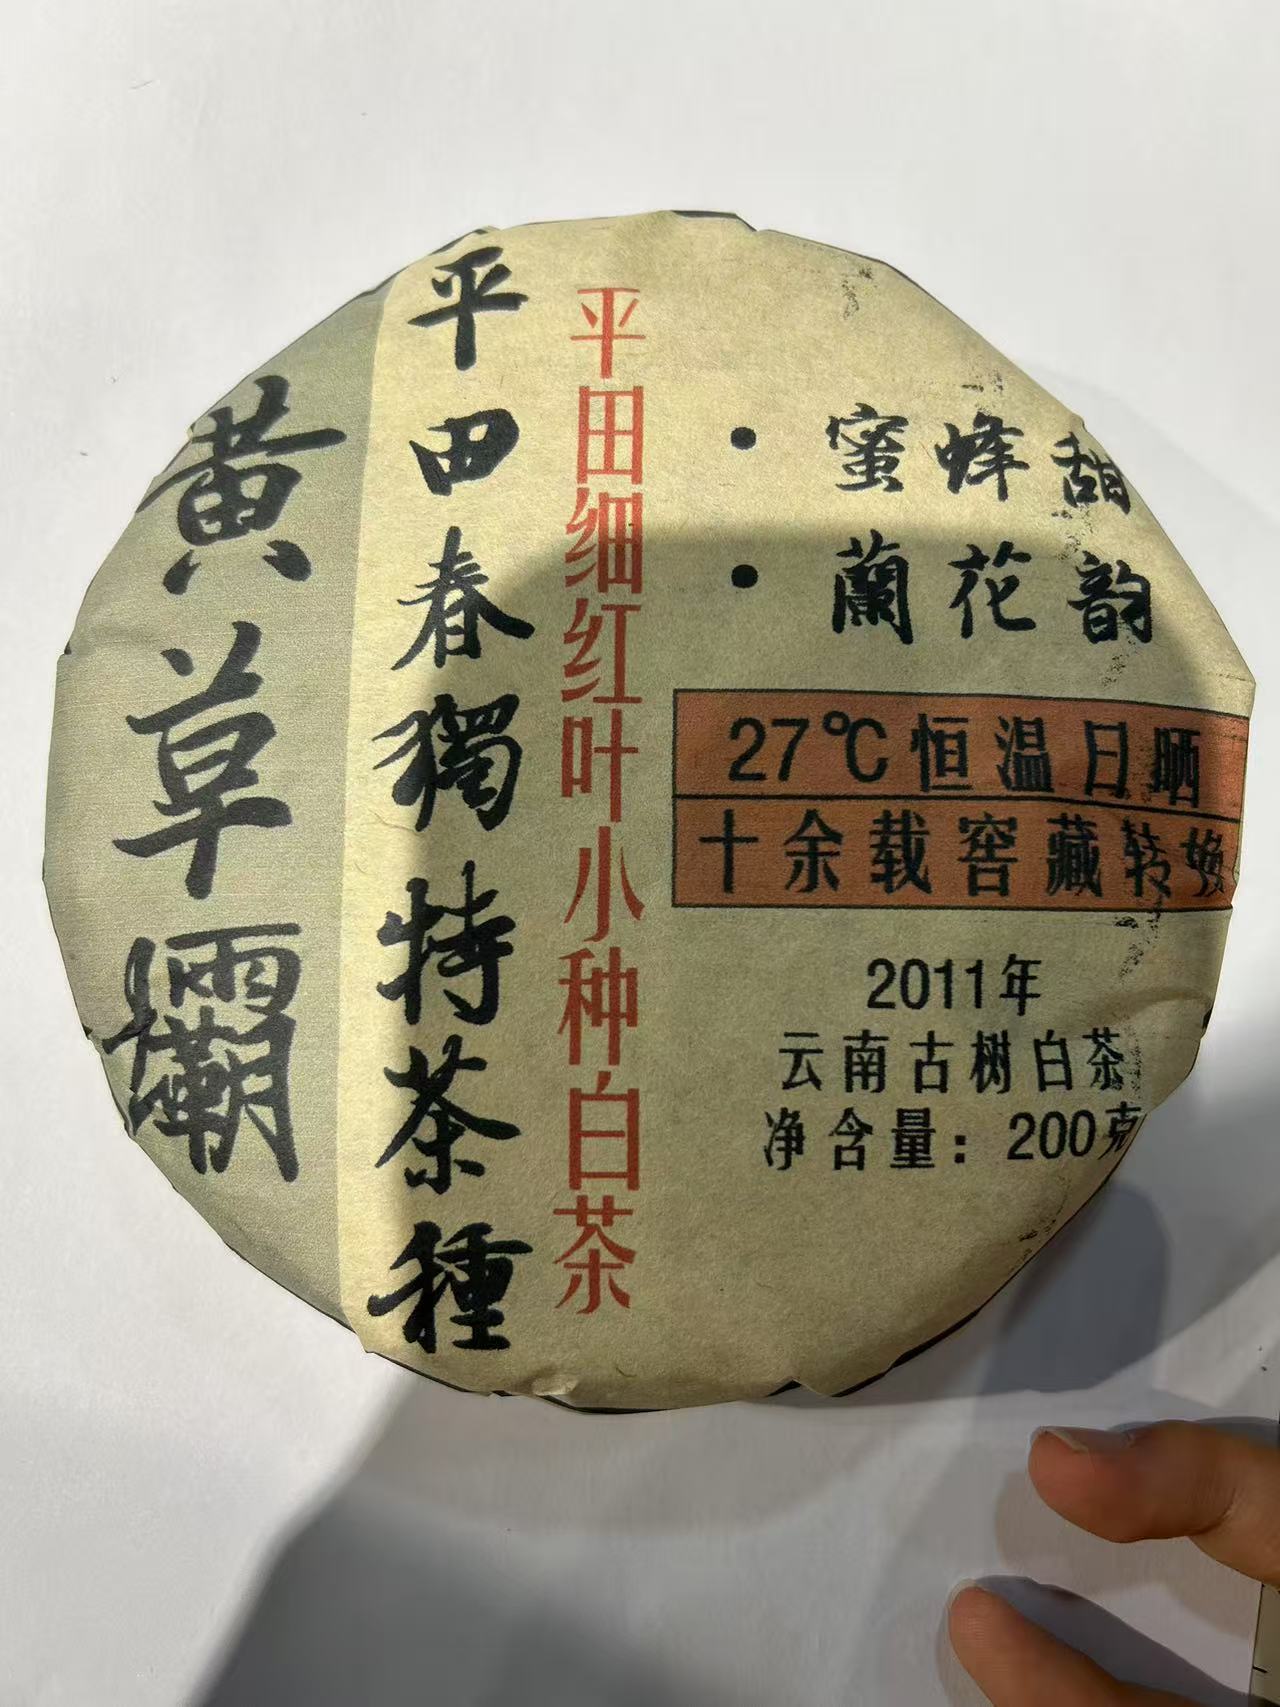 黄草壩
平田春獨特茶種
平田细红叶小种白茶
• 蜜蜂甜
• 蘭花韵
27℃恒温日晒
十余载窖藏转换
2011年
云南古树白茶
净含量：200克